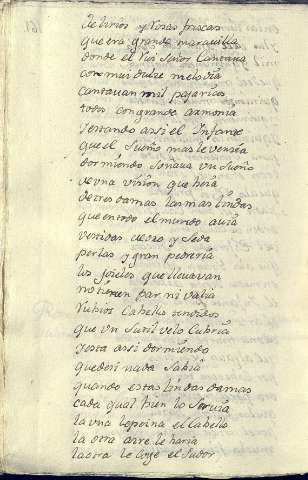 de lirios y Rosas frescas
que era grande maravilla
donde el Rui Señor Cantava
con mui dulze melodia
Cantavan mil pajaricos
todos con grande armonia
y estando assi el Infante
que el Sueño mas le vencia
dormiendo Soñava un Sueño
de una vision que hera
de tres damas las mas lindas
que en todo el mundo avia
vestidas de oro y Seda
perlas y gran pedreria
los joieles que llevavan
no tienen par ni valia
Rubios Cabellos tendidos
que un Sutil velo Cubria
y esta assi dormiendo
que de si nada Sabia
quando estas lindas damas
cada qual bien lo Servia
la una le peina el Cabello
la otra aire le haria
la otra le Coje el Sudor